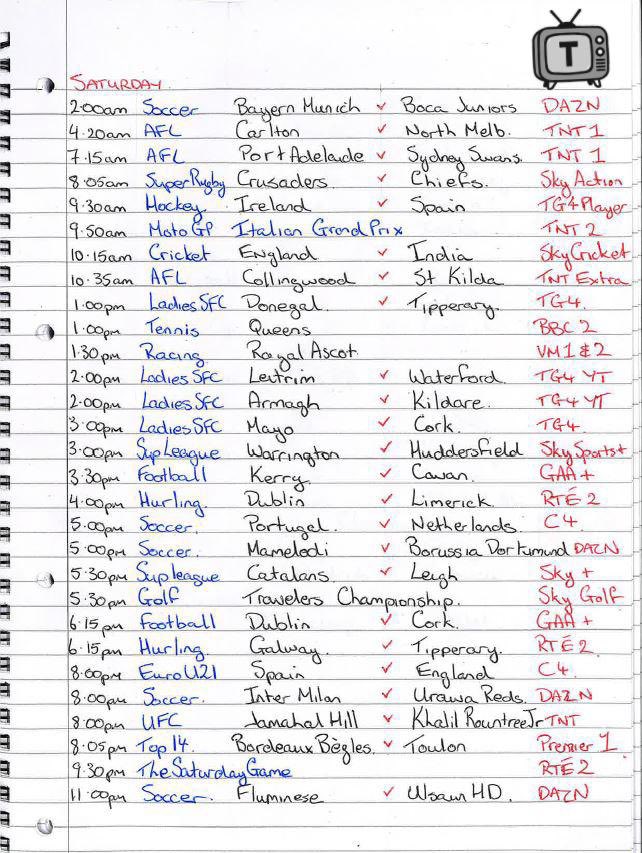 T
SATURDAY.
2:00am Soccer Bayern Munich v Boca Juniors DAZN
4.20am AFL Carlton v North Melb. TNT 1
7.15am AFL Port Adelaide v Sydney Swans. TNT 1
8.05am Super Rugby Crusaders. v Chiefs. Sky Action
9.30am Hockey. Ireland v Spain TG4 Player
9.50am Moto GP Italian Grand Prix TNT 2
10.15am Cricket England v India Sky Cricket
10.35am AFL Collingwood v St Kilda TNT Extra
1.00pm Ladies SFC Donegal. v Tipperary. TG4.
1.00pm Tennis Queens BBC 2
1.30pm Racing Royal Ascot VM1 & 2
2.00pm Ladies SFC Leitrim v Waterford. TG4 YT
2.00pm Ladies SFC Armagh v Kildare. TG4 YT
3.00pm Ladies SFC Mayo v Cork. TG4.
3.00pm Sup League Warrington v Huddersfield Sky Sports+
3.30pm Football Kerry v Cavan. GAA+
4.00pm Hurling. Dublin v Limerick. RTÉ 2
5.00pm Soccer. Portugal. v Netherlands. C4.
5.00pm Soccer. Mamelodi v Borussia Dortmund DAZN
5.30pm Sup league Catalans. v Leigh Sky +
5.30pm Golf Travelers Championship. Sky Golf
6.15pm Football Dublin v Cork. GAA +
6.15pm Hurling. Galway. v Tipperary. RTÉ 2.
8.00pm Euro U21 Spain v England C4.
8.00pm Soccer. Inter Milan v Urawa Reds. DAZN
8.00pm UFC Jamahal Hill v Khalil Rountree Jr TNT
8.05pm Top 14. Bordeaux Bègles. v Toulon Premier 1
9.30pm The Saturday Game RTÉ 2
11.00pm Soccer. Fluminese v Ulsan HD. DAZN